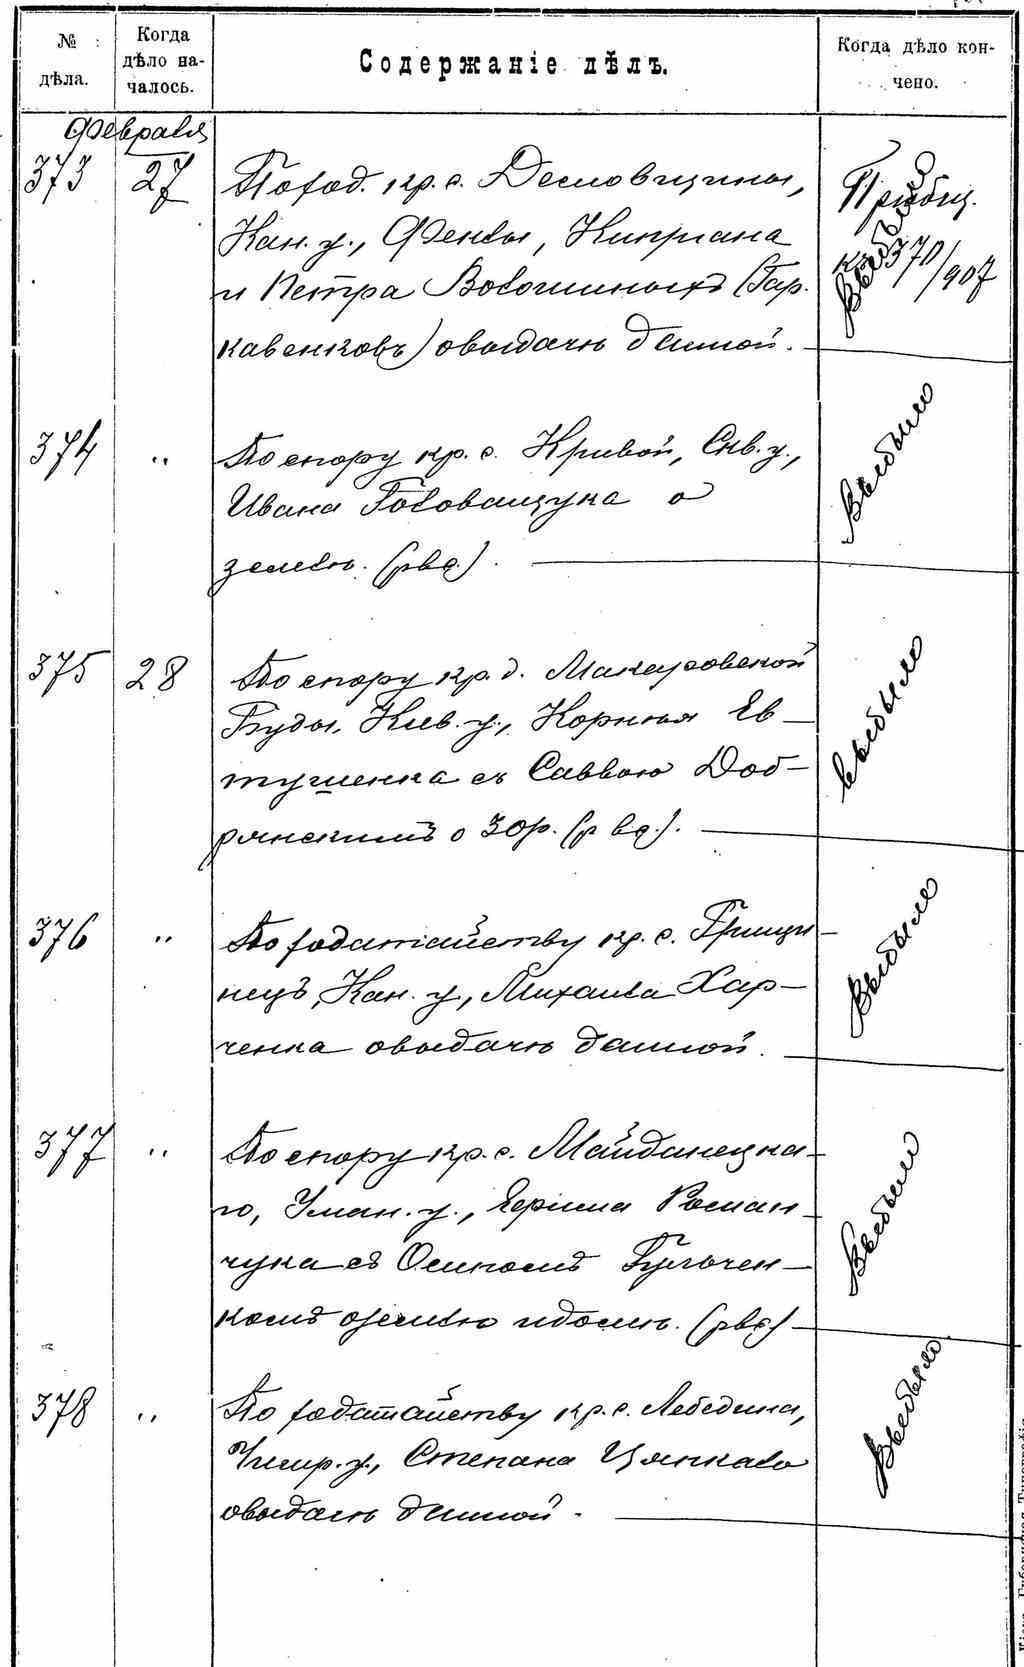 № дѣла.
Когда дѣло началось.
Содержаніе дѣлъ.
Когда дѣло кончено.
Февраля
373 27 По ход. кр. с.
Кан. у., Феклы, Кипріана
и Петра Волошиныхъ (Гар-
кавенковъ) о выдачѣ данной.
Пріобщ.
къ 370/907
Выбыло
374 " По спору кр. с. Кривой, Скв. у.,
Ивана Головащука о
землѣ. (рвс.).
Выбыло
375 28 По спору кр. д. Макаровской
Буды, Кіев. у., Корнія Ев-
тушенка съ Саввою Доб-
рянскимъ о зор. (рвс.).
Выбыло
376 " По ходатайству кр. с. Грищи-
нецъ, Кан. у., Михаила Хар-
ченка о выдачѣ данной.
Выбыло
377 " По спору кр. с. Майданецка-
го, Уман. у., Романчука съ Осипомъ
комъ о землѣ и домѣ. (рвс)
Выбыло
378 " По ходатайству кр. с. Лебедина,
Чигир. у., Степана
о выдачѣ данной.
Выбыло